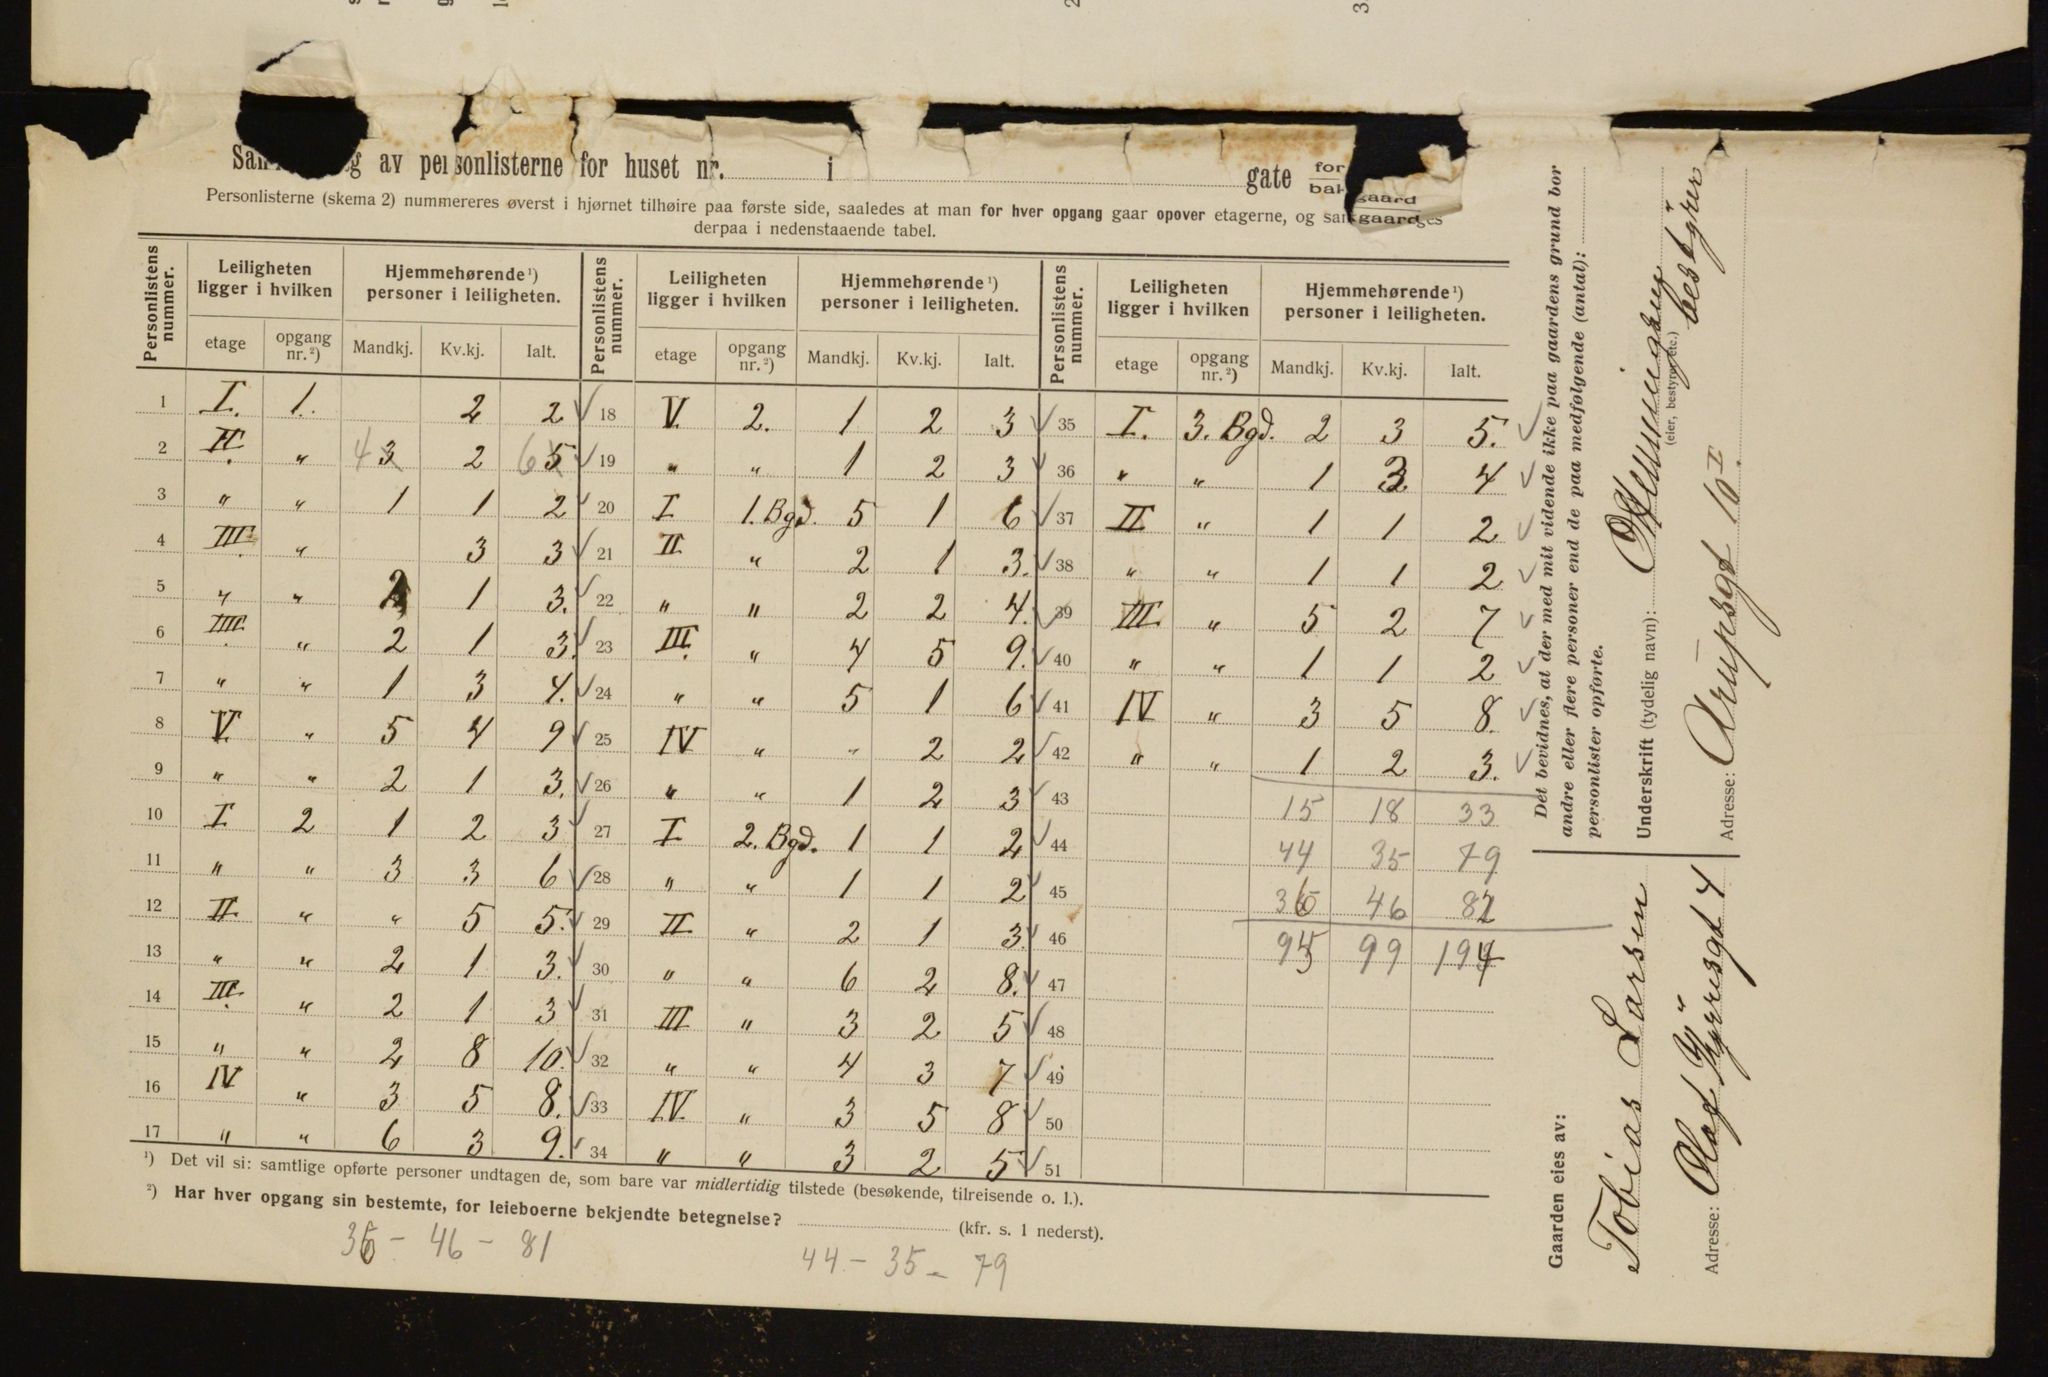 g av personlisterne for huset nr. i gate
Personlisterne (skema 2) nummereres øverst i hjørnet tilhøire paa første side, saaledes at man for hver opgang gaar opover etagerne, og
derpaa i nedenstaaende tabel.
Personlistens nummer. | Leiligheten ligger i hvilken | Hjemmehørende ¹) personer i leiligheten. | Personlistens nummer. | Leiligheten ligger i hvilken | Hjemmehørende ¹) personer i leiligheten. | Personlistens nummer. | Leiligheten ligger i hvilken | Hjemmehørende ¹) personer i leiligheten.
etage | opgang nr. ²) | Mandkj. | Kv.kj. | Ialt. | etage | opgang nr. ²) | Mandkj. | Kv.kj. | Ialt. | etage | opgang nr. ²) | Mandkj. | Kv.kj. | Ialt.
1 I. 1. 2 2
2 II. " 4 3 2 6 5
3 " " 1 1 2
4 III. " 3 3
5 " " 2 1 3.
6 IIII. " 2 1 3.
7 " " 1 3 4.
8 V. " 5 4 9
9 " " 2 1 3.
10 I 2 1 2 3
11 " " 3 3 6
12 II " " 5 5.
13 " " 2 1 3.
14 III. " 2 1 3
15 " " 2 8 10.
16 IV " 3 5 8.
17 " " 6 3 9.
18 V. 2. 1 2 3
19 " " 1 2 3
20 I 1. Bgd. 5 1 6
21 II " 2 1 3.
22 " " 2 2 4.
23 III. " 4 5 9.
24 " " 5 1 6
25 IV " " 2 2
26 " " 1 2 3
27 I 2. Bgd. 1 1 2
28 " " 1 1 2
29 II " 2 1 3
30 " " 6 2 8.
31 III " 3 2 5
32 " " 4 3 7
33 IV " 3 5 8
34 " " 3 2 5
35 I. 3. Bgd. 2 3 5.
36 " " 1 3. 4
37 II " 1 1 2
38 " " 1 1 2
39 III. " 5 2 7
40 " " 1 1 2
41 IV " 3 5 8.
42 " " 1 2 3.
43 15 18 33
44 44 35 79
45 36 46 82
46 95 99 194
47
48
49
50
51
¹) Det vil si: samtlige opførte personer undtagen de, som bare var midlertidig tilstede (besøkende, tilreisende o. l.).
²) Har hver opgang sin bestemte, for leieboerne bekjendte betegnelse? (kfr. s. 1 nederst).
36 - 46 - 81
44 - 35 - 79
Det bevidnes, at der med mit vidende ikke paa gaardens grund bor
andre eller flere personer end de paa medfølgende (antal):
personlister opførte.
Underskrift (tydelig navn): bestyrer
(eier, bestyrer etc.)
Adresse: Arupsgt 10 I.
Gaarden eies av:
Tobias Larsen
Adresse: Olaf Kyrresgt 4